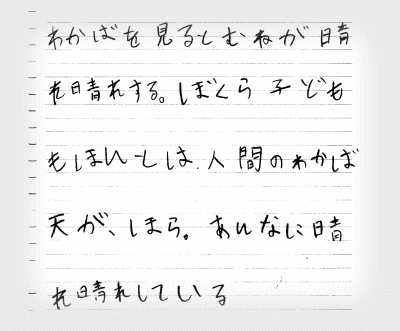 わかばを見るとむねが晴
れ晴れする。ぼくら子ども
もほんとは、人間のわかば
天が、ほら。あんなに晴
れ晴れしている